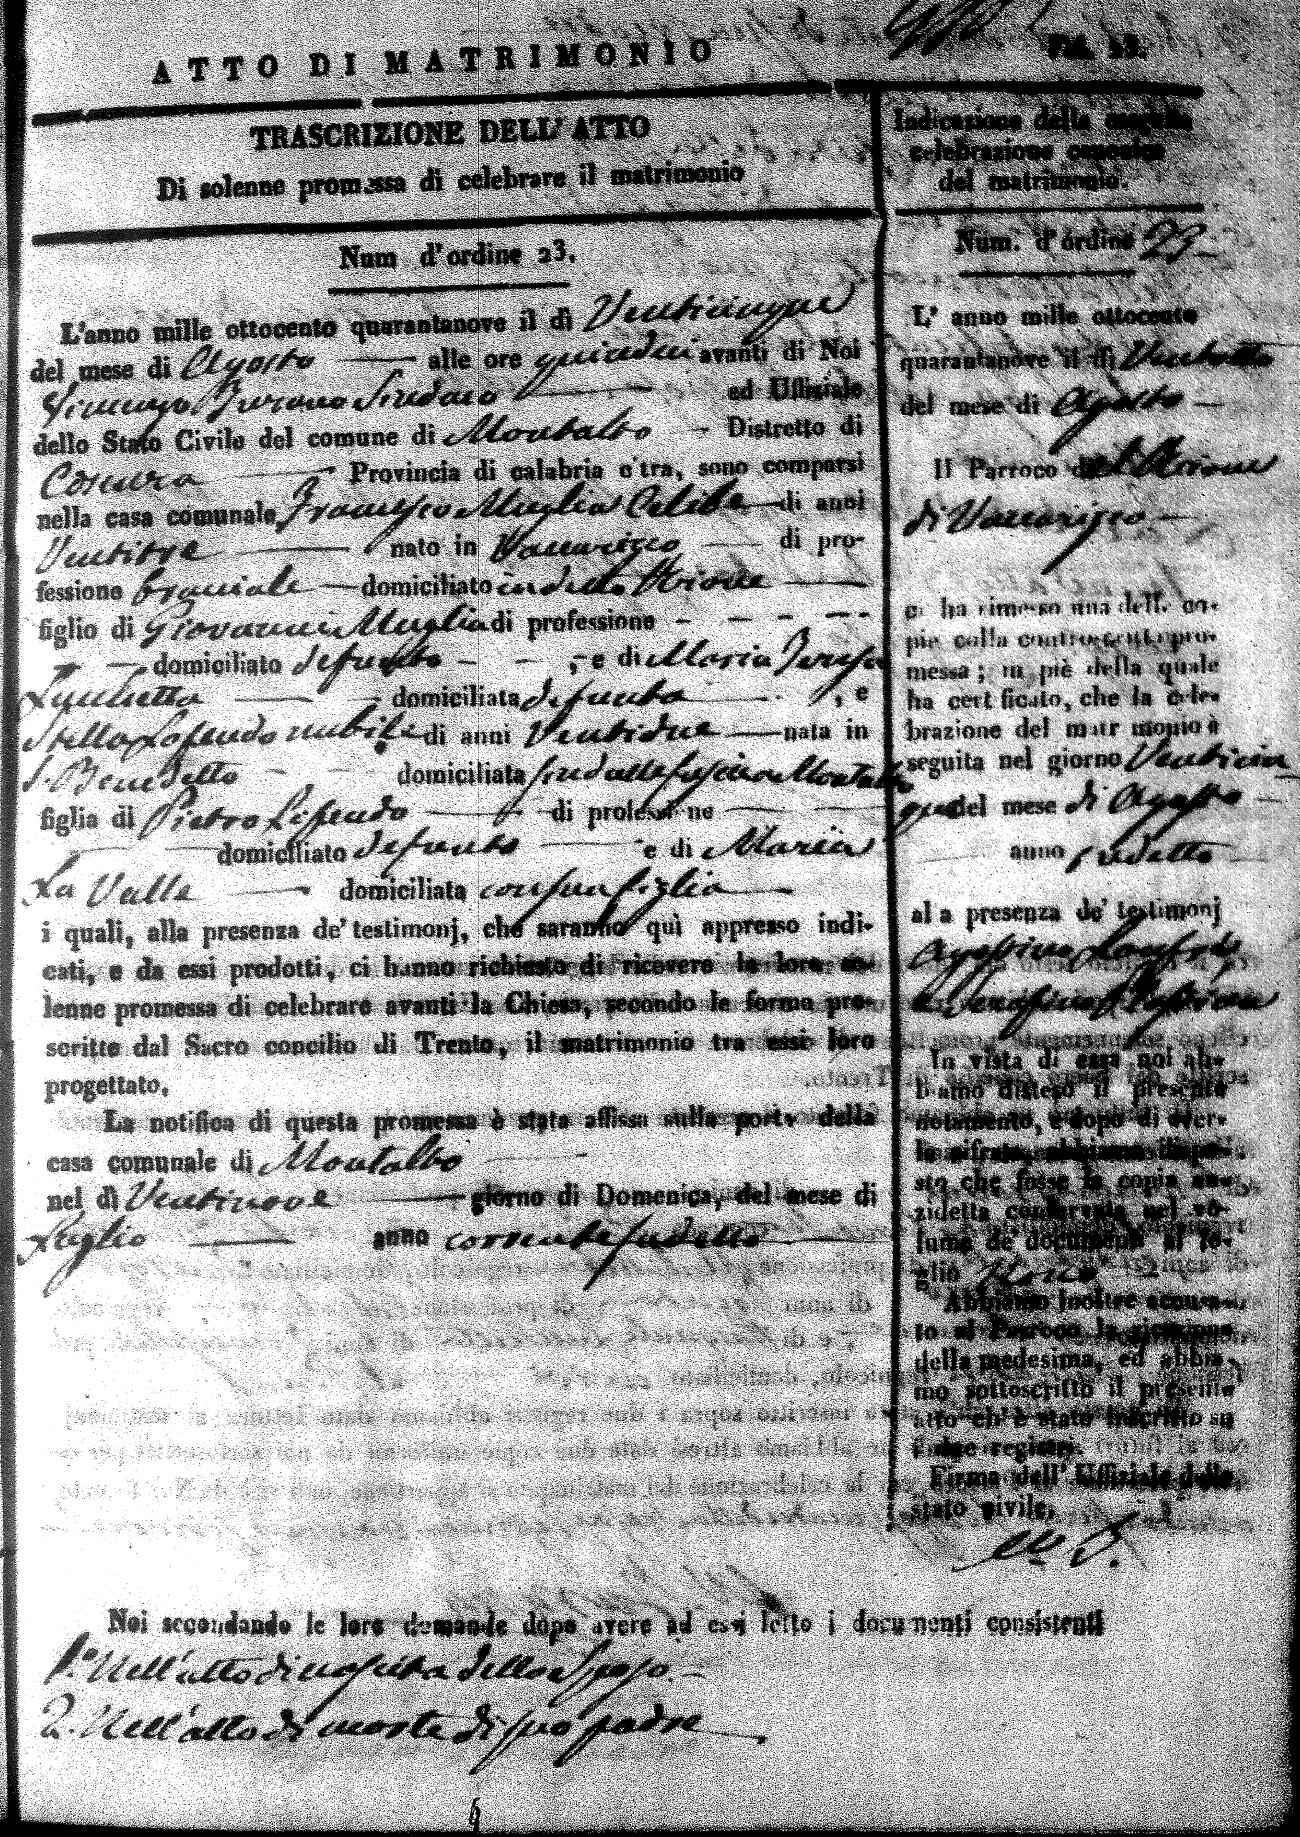 ATTO DI MATRIMONIO
TRASCRIZIONE DELL' ATTO
Di solenne promessa di celebrare il matrimonio
Num d'ordine 23.
L'anno mille ottocento quarantanove il dì Venticinque
del mese di Agosto alle ore quindici avanti di Noi
Sindaco ed Uffiziale
dello Stato Civile del comune di Montalto Distretto di
Cosenza Provincia di calabria citra, sono comparsi
nella casa comunale Francesco Muglia Celibe di anni
Ventitre nato in Vaccarizzo di pro-
fessione braciale domiciliato in detto Rione
figlio di Giovanni Muglia di professione - - - -
domiciliato defunto - - , e di Maria Teresa
domiciliata defunta , e
Stella nubile di anni Ventidue nata in
S. Benedetto domiciliata Montalto
figlia di Pietro di professione
domiciliato defunto e di Maria
La Valle domiciliata con sua figlia
i quali, alla presenza de' testimonj, che saranno quì appresso indi-
cati, e da essi prodotti, ci hanno richiesto di ricevere la loro so-
lenne promessa di celebrare avanti la Chiesa, secondo le forme pre-
scritte dal Sacro concilio di Trento, il matrimonio tra essi loro
progettato.
La notifica di questa promessa è stata affissa sulla porta della
casa comunale di Montalto
nel dì Ventinove giorno di Domenica, del mese di
Luglio anno corrente sudetto
Indicazione della seguita
celebrazione canonica
del matrimonio.
Num. d'ordine 23
L' anno mille ottocento
quarantanove il dì Ventotto
del mese di Agosto
Il Parroco del Rione
di Vaccarizzo
ci ha rimesso una delle co-
pie della controscritta pro-
messa; in piè della quale
ha certificato, che la cele-
brazione del matrimonio è
seguita nel giorno Venticin
que del mese di Agosto
anno sudetto
alla presenza de' testimonj
Agostino
e Serafino
In vista di essa noi ab-
biamo disteso il presente
notamento, e dopo di aver-
la cifrata abbiamo dispo-
sto che fosse la copia an-
zidetta conservata nel vo-
lume de' documenti al fo-
glio Nono
Abbiamo inoltre accusa-
to al Parroco la ricezione
della medesima, ed abbia-
mo sottoscritto il presente
atto ch' è stato inscritto su
i due registri.
Firma dell' Uffiziale dello
stato civile,
Noi secondando le loro domande dopo avere ad essi letto i documenti consistenti
1.° Nell'atto di nascita dello Sposo
2. Nell'atto di morte di suo padre